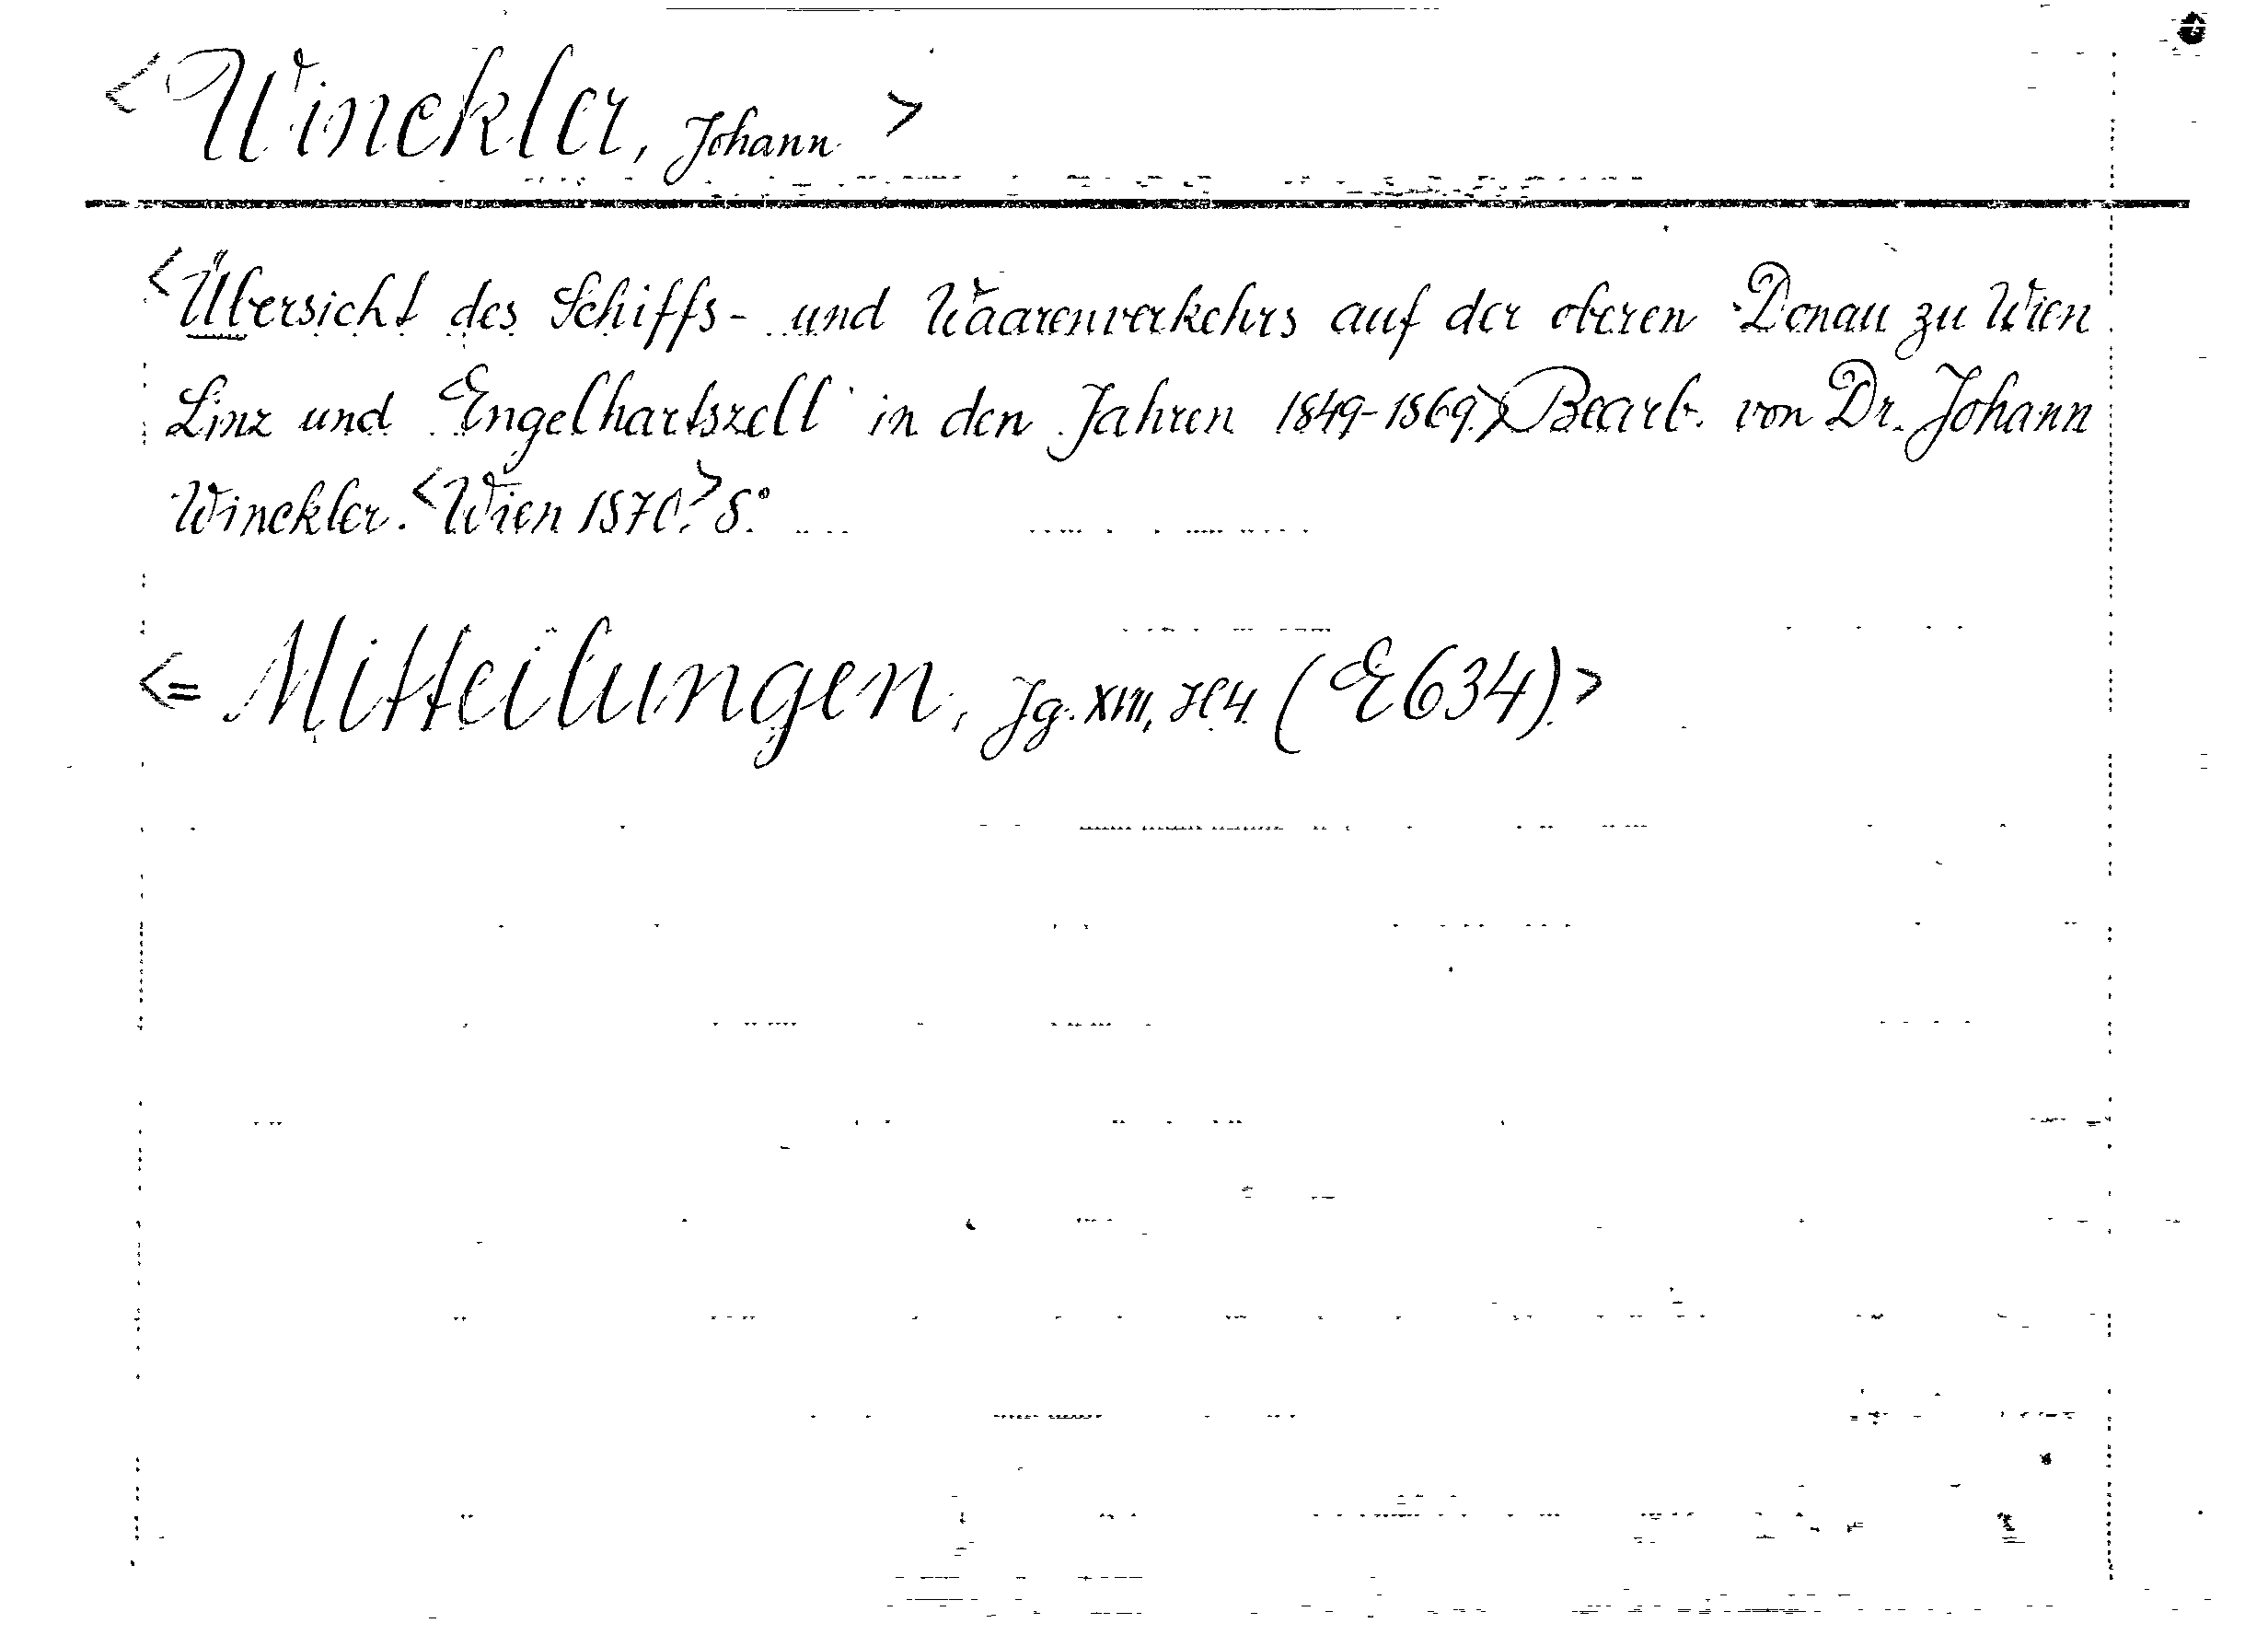 <Winckler, Johann>
<Übersicht des Schiffs- und Waarenverkehrs auf der oberen Donau zu Wien
Linz und Engelhartszell in den Jahren 1849-1869.> Bearb. von Dr. Johann
Winckler. <Wien 1870.> 8.°
<= Mitteilungen, Jg. XVII, H 4 (E634).>